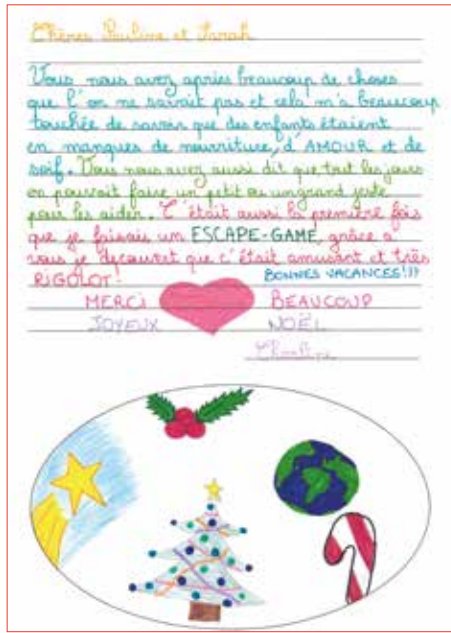 Chères Pauline et Sarah
Vous nous avez appries beaucoup de choses
que l'on ne savait pas et cela m'a beaucoup
touchée de savoir que des enfants étaient
en manques de nourriture, d'AMOUR et de
soif. Vous nous avez aussi dit que tout les jours
on pouvait faire un petit ou un grand geste
pour les aider. C'était aussi la première fois
que je faisais un ESCAPE-GAME, grâce a
vous je decouvert que c'était amusant et très
RIGOLOT. BONNES VACANCES!!!
MERCI BEAUCOUP
JOYEUX NOËL